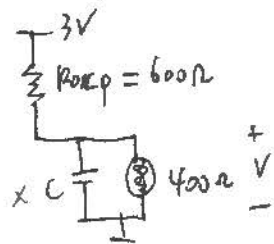 3V
RONP = 600Ω
+
x C 400Ω V
−